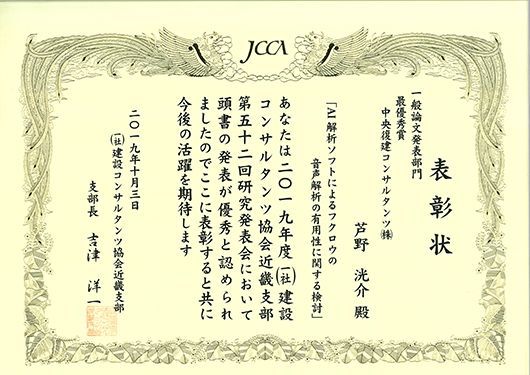 JCCA
表彰状
一般論文発表部門
最優秀賞
中央復建コンサルタンツ㈱
芦野 洸介 殿
「AI解析ソフトによるフクロウの
音声解析の有用性に関する検討」
あなたは二〇一九年度(一社)建設
コンサルタンツ協会近畿支部
第五十二回研究発表会において
頭書の発表が優秀と認められ
ましたのでここに表彰すると共に
今後の活躍を期待します
二〇一九年十月三日
(一社)建設コンサルタンツ協会近畿支部
支部長 吉津 洋一